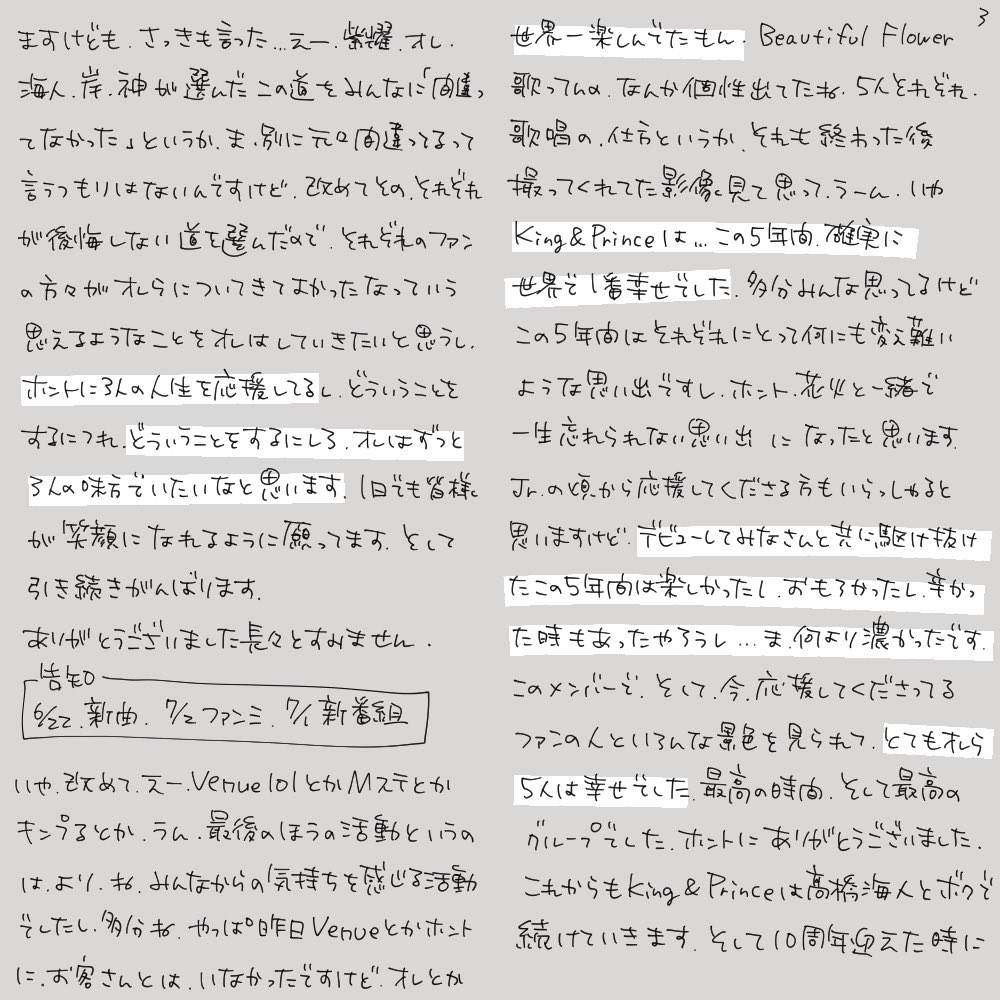 ますけども. さっきも言った…えー. 紫耀. オレ.
海人. 岸. 神が選んだこの道をみんなに「間違っ
てなかった」というか. ま. 別に元々間違ってるって
言うつもりはないんですけど. 改めてその. それぞれ
が後悔しない道を選んだので. それぞれのファン
の方々がオレらについてきてよかったなっていう
思えるようなことをオレはしていきたいと思うし.
ホントに3人の人生を応援してるし. どういうことを
するにつれ. どういうことをするにしろ. オレはずっと
3人の味方でいたいなと思います. 1日でも皆様
が笑顔になれるように願ってます. そして
引き続きがんばります.
ありがとうございました長々とすみません.
告知
6/22. 新曲. 7/2 ファンミ. 7/1 新番組
いや. 改めて. えー. Venue101とかMステとか
キンプるとか. うん. 最後のほうの活動というの
は. より. ね. みんなからの気持ちを感じる活動
でしたし. 多分ね. やっぱ昨日Venueとかホント
に. お客さんとは. いなかったですけど. オレとか
3
世界一楽しんでたもん. Beautiful Flower
歌ってんの. なんか個性出てたね. 5人それぞれ.
歌唱の. 仕方というか. それも終わった後
撮ってくれてた影像見て思って. うーん. いや
King&Princeは… この5年間. 確実に
世界で1番幸せでした. 多分みんな思ってるけど
この5年間はそれぞれにとって何にも変え難い
ような思い出ですし. ホント. 花火と一緒で
一生忘れられない思い出 になったと思います.
Jr.の頃から応援してくださる方もいらっしゃると
思いますけど. デビューしてみなさんと共に駆け抜け
たこの5年間は楽しかったし. おもろかったし. 辛かっ
た時もあったやろうし… ま. 何より濃かったです.
このメンバーで. そして. 今. 応援してくださってる
ファンの人といろんな景色を見られて. とてもオレら
5人は幸せでした. 最高の時間. そして最高の
グループでした. ホントにありがとうございました.
これからもKing&Princeは髙橋海人とボクで
続けていきます. そして10周年迎えた時に